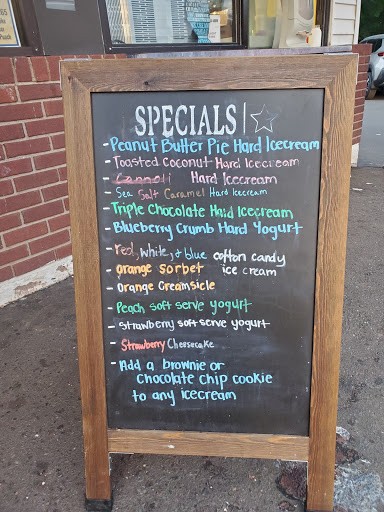 SPECIALS
- Peanut Butter Pie Hard Icecream
- Toasted Coconut Hard Icecream
- Cannoli Hard Icecream
- Sea Salt Caramel Hard Icecream
Triple Chocolate Hard Icecream
- Blueberry Crumb Hard Yogurt
- red, white, & blue cotton candy
ice cream
- orange sorbet
- Orange Creamsicle
- Peach soft serve yogurt
- strawberry soft serve yogurt
- Strawberry Cheesecake
- Add a brownie or
Chocolate chip cookie
to any icecream